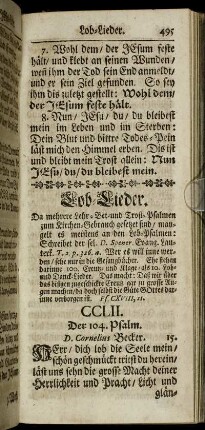 Lob-Lieder. 495
7. Wohl dem/ der JEsum feste
hält/ und klebt an seinen Wunden/
weñ ihm der Tod sein End anmeldt/
und er sein Ziel gefunden. So sey
ihm dis zuletzt gestellt: Wohl dem/
der JEsum feste hält.
8. Nun/ JEsu/ du/ du bleibest
mein im Leben und im Sterben:
Dein Blut und bittre Todes-Pein
läst mich den Himmel erben. Dis ist
und bleibt mein Trost allein: Nun
JEsu/ du/ du bleibest mein.
Lob-Lieder.
Da mehrere Lehr- Bet- und Trost-Psalmen
zum Kirchen-Gebrauch gesetzet sind/ man-
gelt es meistens an den Lob-Psalmen:
Schreibet der sel. D. Spener. Evang. Lau-
terk. T. 2. p. 326. a. Wer es will inne wer-
den/ sehe nur die Gesangbücher. Ehe
darinne 100. Creutz- und Klage- als 10. Lob-
und Danck-Lieder. Das macht: Daß wir über
das bißgen zugeschickte Creutz gar zu grosse Au-
gen machen/ da doch selbst die Güte GOttes dar-
unter verborgen ist. Ps. CXVIII, 21.
CCLII.
Der 104. Psalm.
D. Cornelius Becker. 15.
HErr/ dich lob die Seele mein/
schön geschmückt wirst du herein/
läst uns sehn die grosse Macht deiner
Herrlichkeit und Pracht/ Licht und
glän-